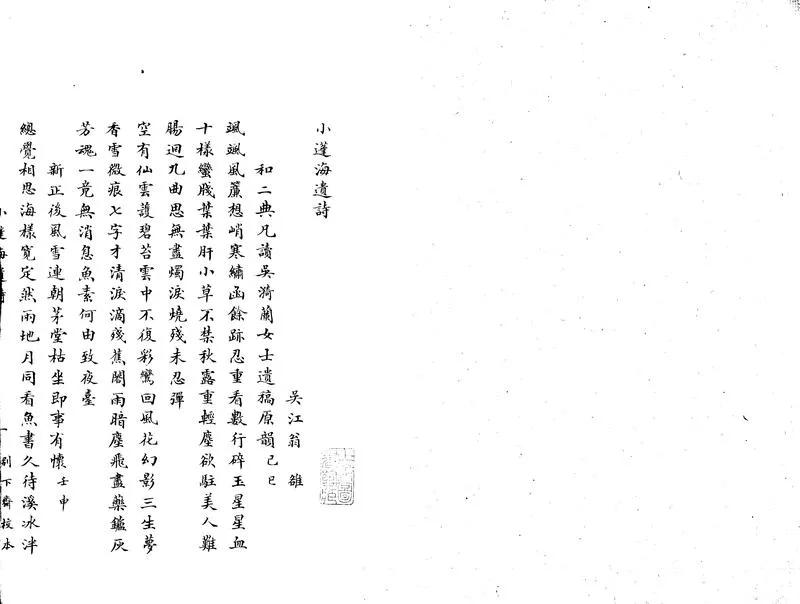 小蓬海遺詩
吳江翁雒
和二典凡讀吳漪蘭女士遺稿原韻己巳
颯颯風簾想峭寒繡函餘跡忍重看數行碎玉星星血
十樣蠻牋葉葉肝小草不禁秋露重輕塵欲駐美人難
腸迴九曲思無盡燭淚燒殘未忍彈
空有仙雲護碧苔雲中不復彩鸞回風花幻影三生夢
香雪微痕七字才清淚滴殘蕉閣雨暗塵飛盡藥鑪灰
芳魂一竟無消息魚素何由致夜臺
新正後風雪連朝茅堂枯坐即事有懷壬申
總覺相思海樣寬定然兩地月同看魚書久待溪冰泮
小蓬海遺詩
別下齋校本